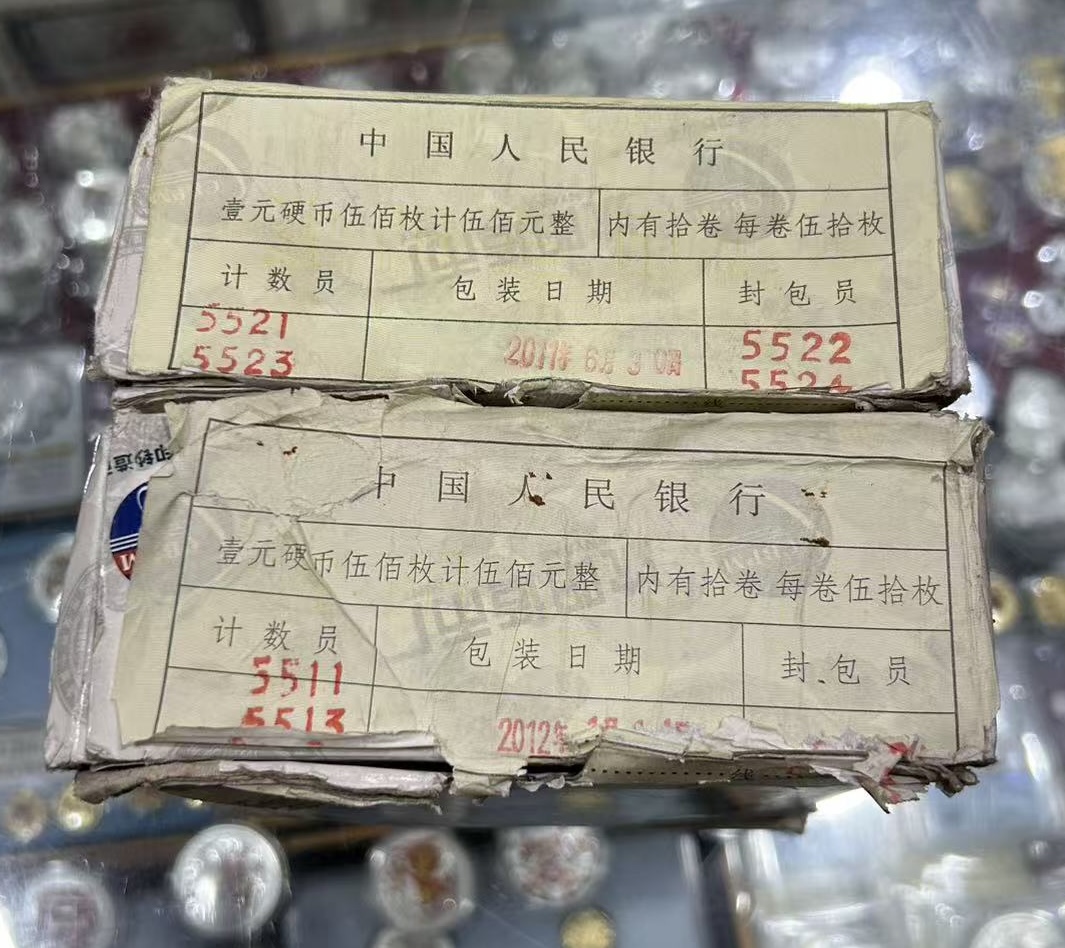 中国人民银行
壹元硬币伍佰枚计伍佰元整 内有拾卷 每卷伍拾枚
计数员 包装日期 封包员
5521 5522
5523 2011年6月30日 5524
印钞造
中国人民银行
壹元硬币伍佰枚计伍佰元整 内有拾卷 每卷伍拾枚
计数员 包装日期 封包员
5511
5513 2012年